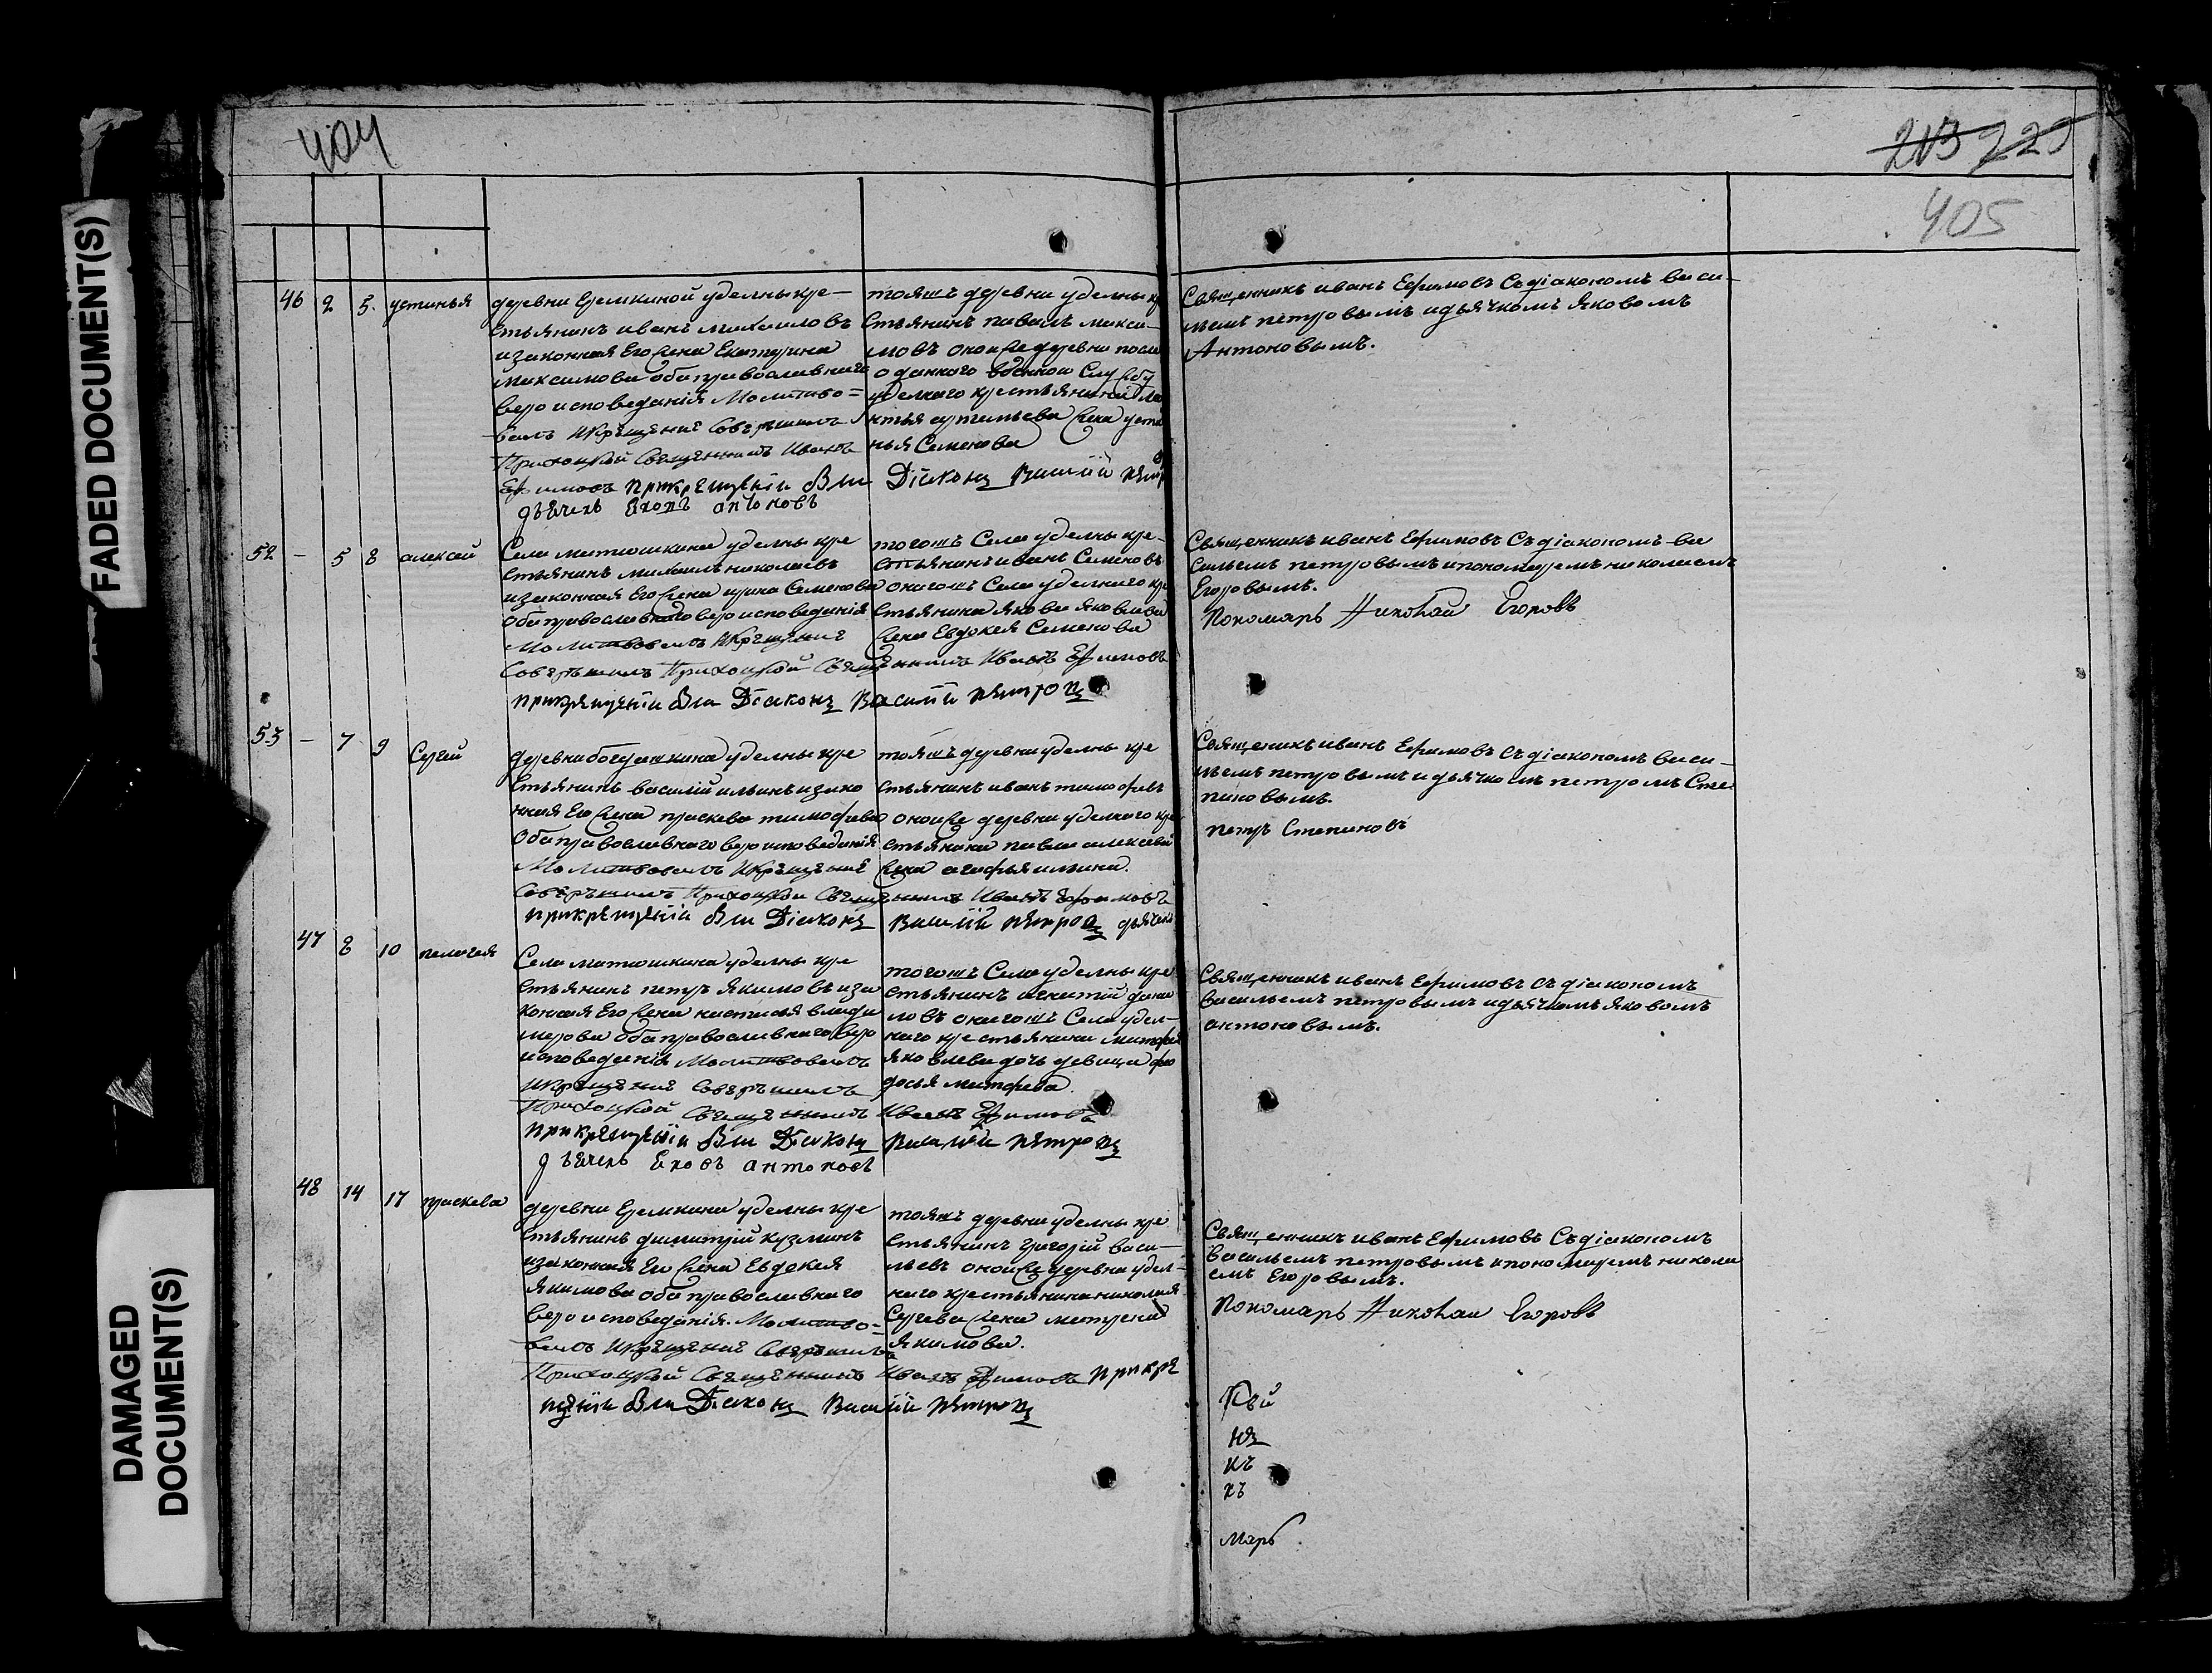 404
213 229
405
FADED DOCUMENT(S)
DAMAGED
DOCUMENT(S)
46 2 5. устинья
деревни Еремкиной уделны кре—
стьянинъ иванъ михаиловъ
изаконная Его жена Екатерина
Максимова оба православнаго
вероисповеданiя Молитво=
валъ Икрещение Совершилъ
Приходской Священникъ Иванъ
Ефимовъ прикрещенiи был Дiаконъ Василiй петр
дьячекъ Яковъ антоновъ
тояжъ деревни уделны кр
стьянинъ павелъ макси—
мовъ оной же деревни после
отданного военною Службу
уделнаго крестьянина
артемьева жена усти
нья Семенова
Священникъ иванъ Ефимовъ Съдiакономъ васи—
льемъ петровымъ идьячкомъ Яковомъ
Антоновымъ.
52 — 5 8 алексей
Села матюшкина уделны кре
стьянинъ михаилъ николаевъ
изаконная Его жена ирина Семенова
оба православнаго вероисповеданiя
Молитвовалъ Икрещение
Совершилъ Приходской Священникъ Иванъ Ефимовъ
прикрещенiи был Дiаконъ Василiй петровъ
тогожъ Села уделны кре—
стьянинъ иванъ Семеновъ
онагожъ Села уделнаго кре
стьянина якова яковлева
жена Евдокея Семенова
Священникъ иванъ Ефимовъ Съдiакономъ—ва
сильемъ петровымъ ипономаремъ николаемъ
Егоровымъ.
Пономарь Николай Егоровъ
53 — 7 9 Сергей
деревни богдашкина уделны кре
стьянинъ василiй ильинъ изако
нная Его жена праскева тимофеева
Оба православнаго вероисповеданiя
Молитвовалъ Икрещение
Совершилъ Приходской Священникъ Иванъ Ефимовъ
прикрещенiи был Дiаконъ Василiй петровъ дьячекъ
тояжъ деревни уделны кре
стьянинъ иванъ тимофеевъ
оной же деревни уделнаго кре
стьянина павла алексеева
жена агафья ильина.
Священикъ иванъ Ефимовъ съдiакономъ васи—
льемъ петровымъ идьячкомъ петромъ Сте
пановымъ.
петръ Степановъ
47 8 10 пелагея
Села матюшкина уделны кре
стьянинъ петръ якимовъ иза
конная Его жена настасья влади
мерова оба православнаго веро
исповеданiя Молитвовалъ
Икрещение Совершилъ
Приходской Священникъ Иванъ Ефимовъ
прикрещенiи был Дiаконъ Василiй петровъ
дьячекъ Яковъ антоновъ
тогожъ Села уделны кре
стьянинъ игнатiй дани
ловъ онагожъ Села удел—
наго крестьянина матфея
яковлева дочь девица фео
досья матфеева
Священникъ иванъ Ефимовъ съдiакономъ
васильемъ петровымъ идьячкомъ яковомъ
антоновымъ.
48 14 17 праскева
деревни Еремкина уделны кре
стьянинъ димитрiй кузминъ
изаконная Его жена Евдокея
якимова оба православнаго
вероисповеданiя. Молитво=
валъ Икрещение Совершилъ
Приходской Священникъ Иванъ Ефимовъ прикре
щенiи был Дiаконъ Василiй петровъ
тояжъ деревни уделны кре
стьянинъ григорiй васи—
льевъ оной же деревни удел—
наго крестьянина николая
Сергева жена матрена
якимова.
Священникъ иванъ Ефимовъ Съдiакономъ
васильемъ петровымъ ипономаремъ никола
емъ Егоровымъ.
Пономарь Николай Егоровъ
нъ
къ
къ
марь